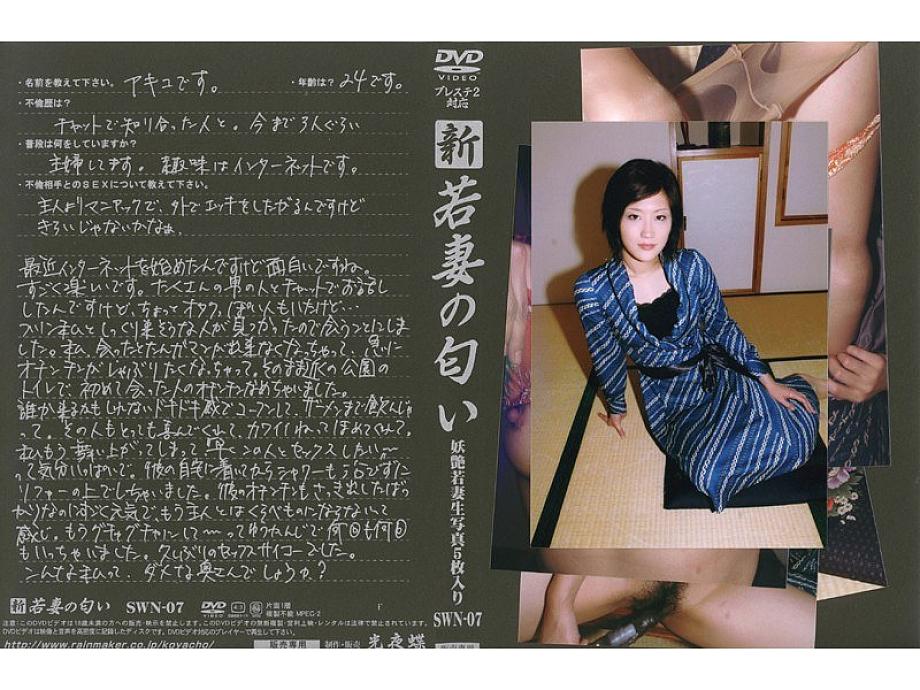 ・名前を教えて下さい。 アキュです。 ・年齢は? 24です。
・不倫歴は?
チャットで知り合った人と。今まで3人ぐらい
・普段は何をしていますか?
主婦してます。趣味はインターネットです。
・不倫相手とのSEXについて教えて下さい。
主人よりマニアックで、外でエッチをしたがるんですけど
きらいじゃないかなぁ。
最近インターネットを始めたんですけど面白いですね。
すごく楽しいです。たくさんの男の人とチャットでお話し
したんですけど、ちょっとオタクっぽい人もいたけど…
しました。
トイレで、初めて会った人のオチンチンなめちゃいました。
誰か来るかもしれないドキドキ感でコーフンして、ザーメンまで飲んじゃ
って。その人もとっても喜んでくれて、カワイイねってほめてくれて。
私もう舞い上がってしまって早くこの人とセックスしたいー
って気分いっぱいで、彼の自宅に着いてからシャワーもあびずに
ソファーの上でしちゃいました。彼のオチンチンもさっき出したばっ
かりなのにすごく元気で、もう主人とはくらべものにならないって
感じ。もうグチャグチャにして〜ってゆうかんじで何回も何回
もいっちゃいました。久しぶりのセックスサイコーでした。
こんな私って、ダメな奥さんでしょうか?
新 若妻の匂い SWN-07 DVD VIDEO 4:3 片面1層 複製不能 MPEG-2
注意:このDVDビデオは18歳未満の方への販売・映示を禁止します。このDVDビデオの無断複製・営利上映・レンタルは法律で禁止されています。
DVDビデオは映像と音声を高密度に記録したディスクです。DVDビデオ対応のプレイヤーで再生して下さい。
http://www.rainmaker.co.jp/koyacho/ 販売専用 制作・販売 光夜蝶
DVD
VIDEO
プレステ2
対応
新 若妻の匂い
妖艶若妻生写真5枚入り
SWN-07
販売専用